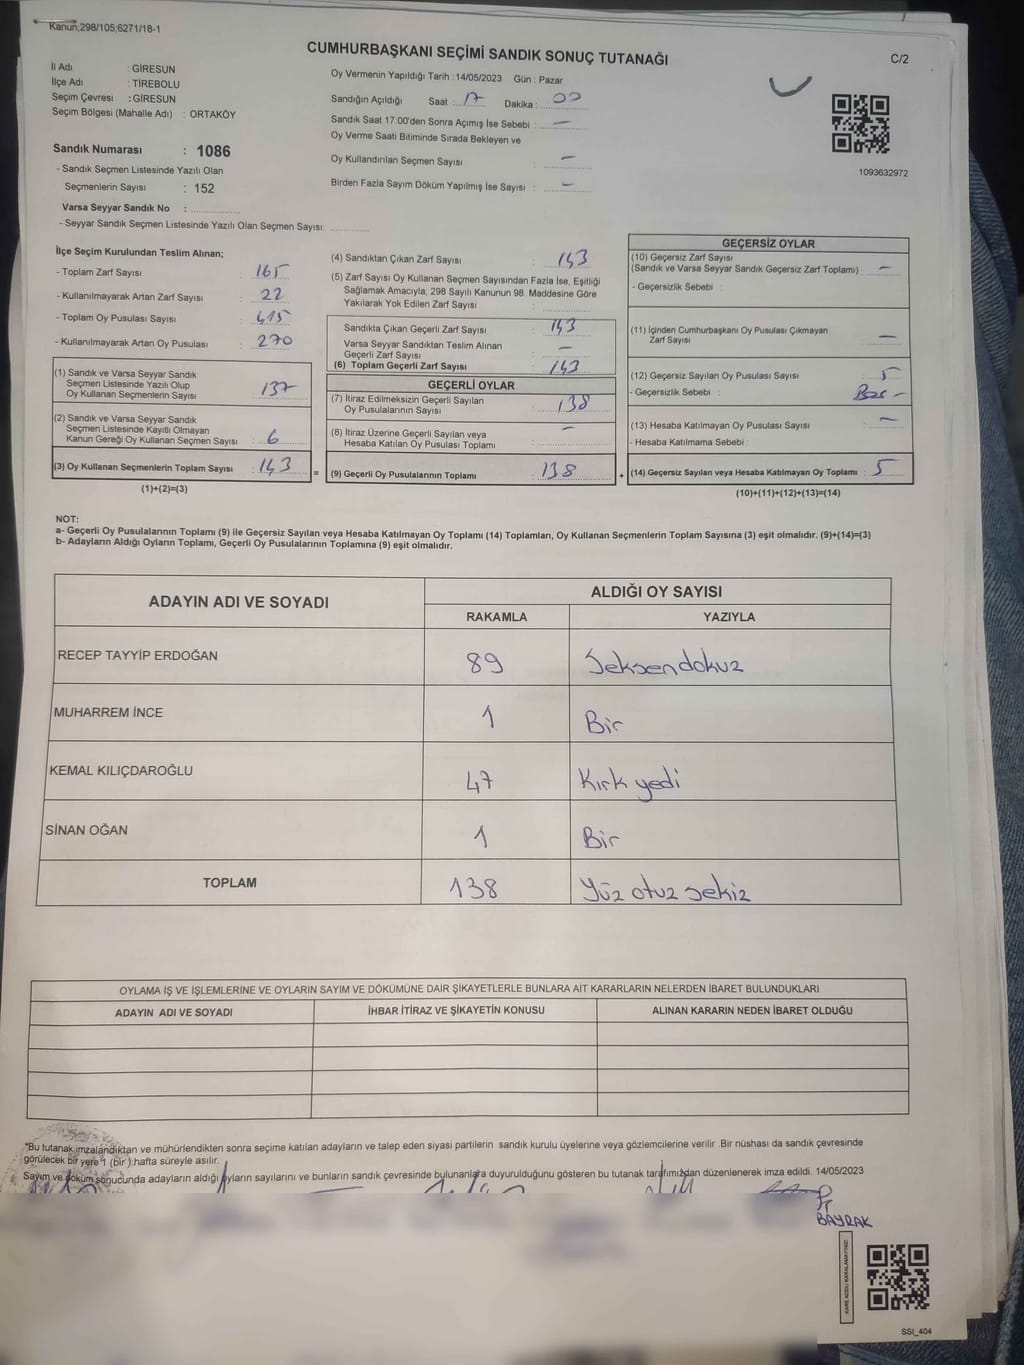 Kanun;298/105;6271/18-1
CUMHURBAŞKANI SEÇİMİ SANDIK SONUÇ TUTANAĞI
C/2
İl Adı : GİRESUN
İlçe Adı : TİREBOLU
Seçim Çevresi : GİRESUN
Seçim Bölgesi (Mahalle Adı) : ORTAKÖY
Sandık Numarası : 1086
- Sandık Seçmen Listesinde Yazılı Olan
Seçmenlerin Sayısı : 152
Varsa Seyyar Sandık No :
- Seyyar Sandık Seçmen Listesinde Yazılı Olan Seçmen Sayısı:
Oy Vermenin Yapıldığı Tarih :14/05/2023 Gün : Pazar
Sandığın Açıldığı Saat : 17 Dakika : 00
Sandık Saat 17:00'den Sonra Açımış İse Sebebi : —
Oy Verme Saati Bitiminde Sırada Bekleyen ve
Oy Kullandırılan Seçmen Sayısı : —
Birden Fazla Sayım Döküm Yapılmış İse Sayısı : —
1093632972
İlçe Seçim Kurulundan Teslim Alınan;
- Toplam Zarf Sayısı : 165
- Kullanılmayarak Artan Zarf Sayısı : 22
- Toplam Oy Pusulası Sayısı : 415
- Kullanılmayarak Artan Oy Pusulası : 270
(1) Sandık ve Varsa Seyyar Sandık
Seçmen Listesinde Yazılı Olup
Oy Kullanan Seçmenlerin Sayısı : 137
(2) Sandık ve Varsa Seyyar Sandık
Seçmen Listesinde Kayıtlı Olmayan
Kanun Gereği Oy Kullanan Seçmen Sayısı : 6
(3) Oy Kullanan Seçmenlerin Toplam Sayısı : 143
(1)+(2)=(3)
(4) Sandıktan Çıkan Zarf Sayısı : 143
(5) Zarf Sayısı Oy Kullanan Seçmen Sayısından Fazla İse, Eşitliği
Sağlamak Amacıyla; 298 Sayılı Kanunun 98. Maddesine Göre
Yakılarak Yok Edilen Zarf Sayısı :
Sandıkta Çıkan Geçerli Zarf Sayısı : 143
Varsa Seyyar Sandıktan Teslim Alınan
Geçerli Zarf Sayısı : —
(6) Toplam Geçerli Zarf Sayısı : 143
GEÇERLİ OYLAR
(7) İtiraz Edilmeksizin Geçerli Sayılan
Oy Pusulalarının Sayısı : 138
(8) İtiraz Üzerine Geçerli Sayılan veya
Hesaba Katılan Oy Pusulası Toplamı : —
= (9) Geçerli Oy Pusulalarının Toplamı : 138
GEÇERSİZ OYLAR
(10) Geçersiz Zarf Sayısı
(Sandık ve Varsa Seyyar Sandık Geçersiz Zarf Toplamı) : —
- Geçersizlik Sebebi :
(11) İçinden Cumhurbaşkanı Oy Pusulası Çıkmayan
Zarf Sayısı : —
(12) Geçersiz Sayılan Oy Pusulası Sayısı : 5
- Geçersizlik Sebebi :
(13) Hesaba Katılmayan Oy Pusulası Sayısı : —
- Hesaba Katılmama Sebebi :
+ (14) Geçersiz Sayılan veya Hesaba Katılmayan Oy Toplamı : 5
(10)+(11)+(12)+(13)=(14)
NOT:
a- Geçerli Oy Pusulalarının Toplamı (9) ile Geçersiz Sayılan veya Hesaba Katılmayan Oy Toplamı (14) Toplamları, Oy Kullanan Seçmenlerin Toplam Sayısına (3) eşit olmalıdır. (9)+(14)=(3)
b- Adayların Aldığı Oyların Toplamı, Geçerli Oy Pusulalarının Toplamına (9) eşit olmalıdır.
ADAYIN ADI VE SOYADI ALDIĞI OY SAYISI
RAKAMLA YAZIYLA
RECEP TAYYİP ERDOĞAN 89 Seksendokuz
MUHARREM İNCE 1 Bir
KEMAL KILIÇDAROĞLU 47 Kırk yedi
SİNAN OĞAN 1 Bir
TOPLAM 138 Yüz otuz sekiz
OYLAMA İŞ VE İŞLEMLERİNE VE OYLARIN SAYIM VE DÖKÜMÜNE DAİR ŞİKAYETLERLE BUNLARA AİT KARARLARIN NELERDEN İBARET BULUNDUKLARI
ADAYIN ADI VE SOYADI İHBAR İTİRAZ VE ŞİKAYETİN KONUSU ALINAN KARARIN NEDEN İBARET OLDUĞU
*Bu tutanak imzalandıktan ve mühürlendikten sonra seçime katılan adayların ve talep eden siyasi partilerin sandık kurulu üyelerine veya gözlemcilerine verilir .Bir nüshası da sandık çevresinde
görülecek bir yere 1 (bir ) hafta süreyle asılır.
Sayım ve döküm sonucunda adayların aldığı oyların sayılarını ve bunların sandık çevresinde bulunanlara duyurulduğunu gösteren bu tutanak tarafımızdan düzenlenerek imza edildi. 14/05/2023
BAYRAK
KARE KODU KARALAMAYINIZ!
SSI_404